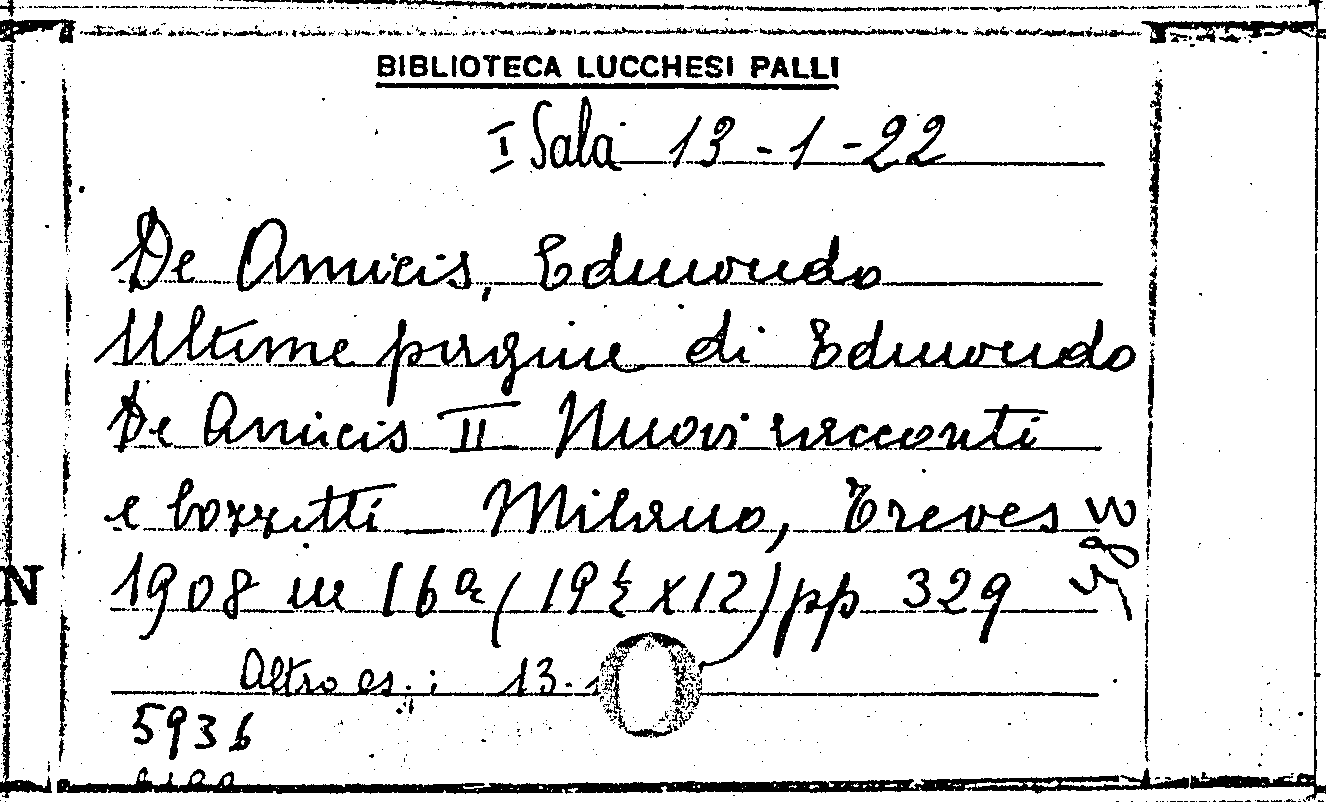 BIBLIOTECA LUCCHESI PALLI
I Sala 13-1-22
De Amicis, Edmondo
Ultime pagine di Edmondo
De Amicis II Nuovi racconti
e bozzetti - Milano, Treves
1908 in 16º (19½ x 12) pp 329
Altro es.: 13.
5936
N